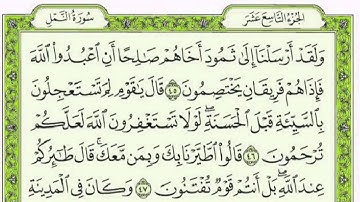 الجزء التاسع عشر
سورة النمل
وَلَقَدْ أَرْسَلْنَآ إِلَىٰ ثَمُودَ أَخَاهُمْ صَٰلِحًا أَنِ ٱعْبُدُوا۟ ٱللَّهَ
فَإِذَا هُمْ فَرِيقَانِ يَخْتَصِمُونَ ٤٥ قَالَ يَٰقَوْمِ لِمَ تَسْتَعْجِلُونَ
بِٱلسَّيِّئَةِ قَبْلَ ٱلْحَسَنَةِ ۖ لَوْلَا تَسْتَغْفِرُونَ ٱللَّهَ لَعَلَّكُمْ
تُرْحَمُونَ ٤٦ قَالُوا۟ ٱطَّيَّرْنَا بِكَ وَبِمَن مَّعَكَ ۚ قَالَ طَٰٓئِرُكُمْ
عِندَ ٱللَّهِ ۖ بَلْ أَنتُمْ قَوْمٌ تُفْتَنُونَ ٤٧ وَكَانَ فِى ٱلْمَدِينَةِ